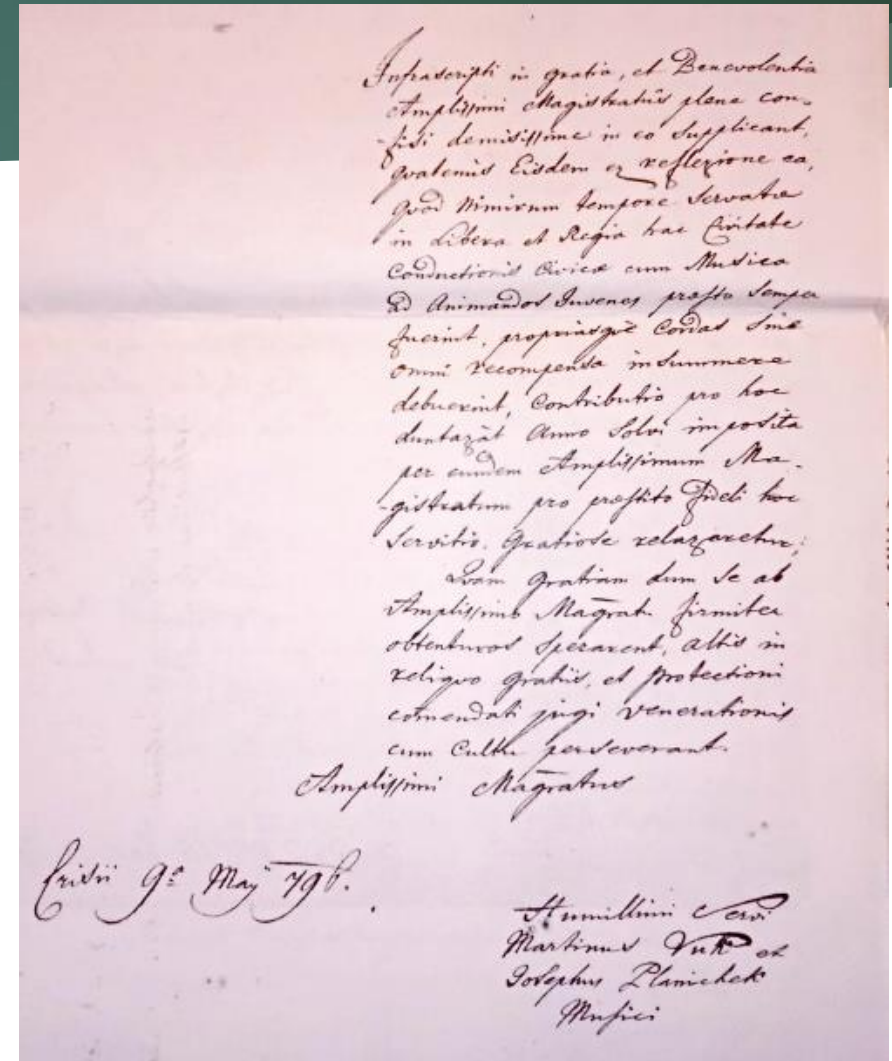 Infrascripti in gratia, et Benevolentia
Amplissimi Magistratûs plene con-
-fisi demisissime in eo Supplicant,
qvatenus Eisdem ex reflexione ea,
Qvod Nimirum tempore Servatæ
in Libera et Regia hac Civitate
Conductionis Civicæ cum Musica
ad Animandos Juvenes præsto Semper
fuerint, propriasqve Cordas Sine
omni recompensa insummere
debuerint, Contributio pro hoc
duntaxât Anno Solvi imposita
per eundem Amplissimum Ma-
-gistratum pro præstito fideli hoc
Servitio. Gratiose relaxaretur;
Qvam Gratiam dum Se ab
Amplissimo Magrat. firmiter
obtenturos Sperarent, altis in
reliqvo Gratiis, et Protectioni
comendati jugi Venerationis
cum Cultu perseverant.
Amplissimi Magratus
Crisii 9a May 796.
Humillimi Servi
Martinus Vuk et
Josephus Planichek
Musici